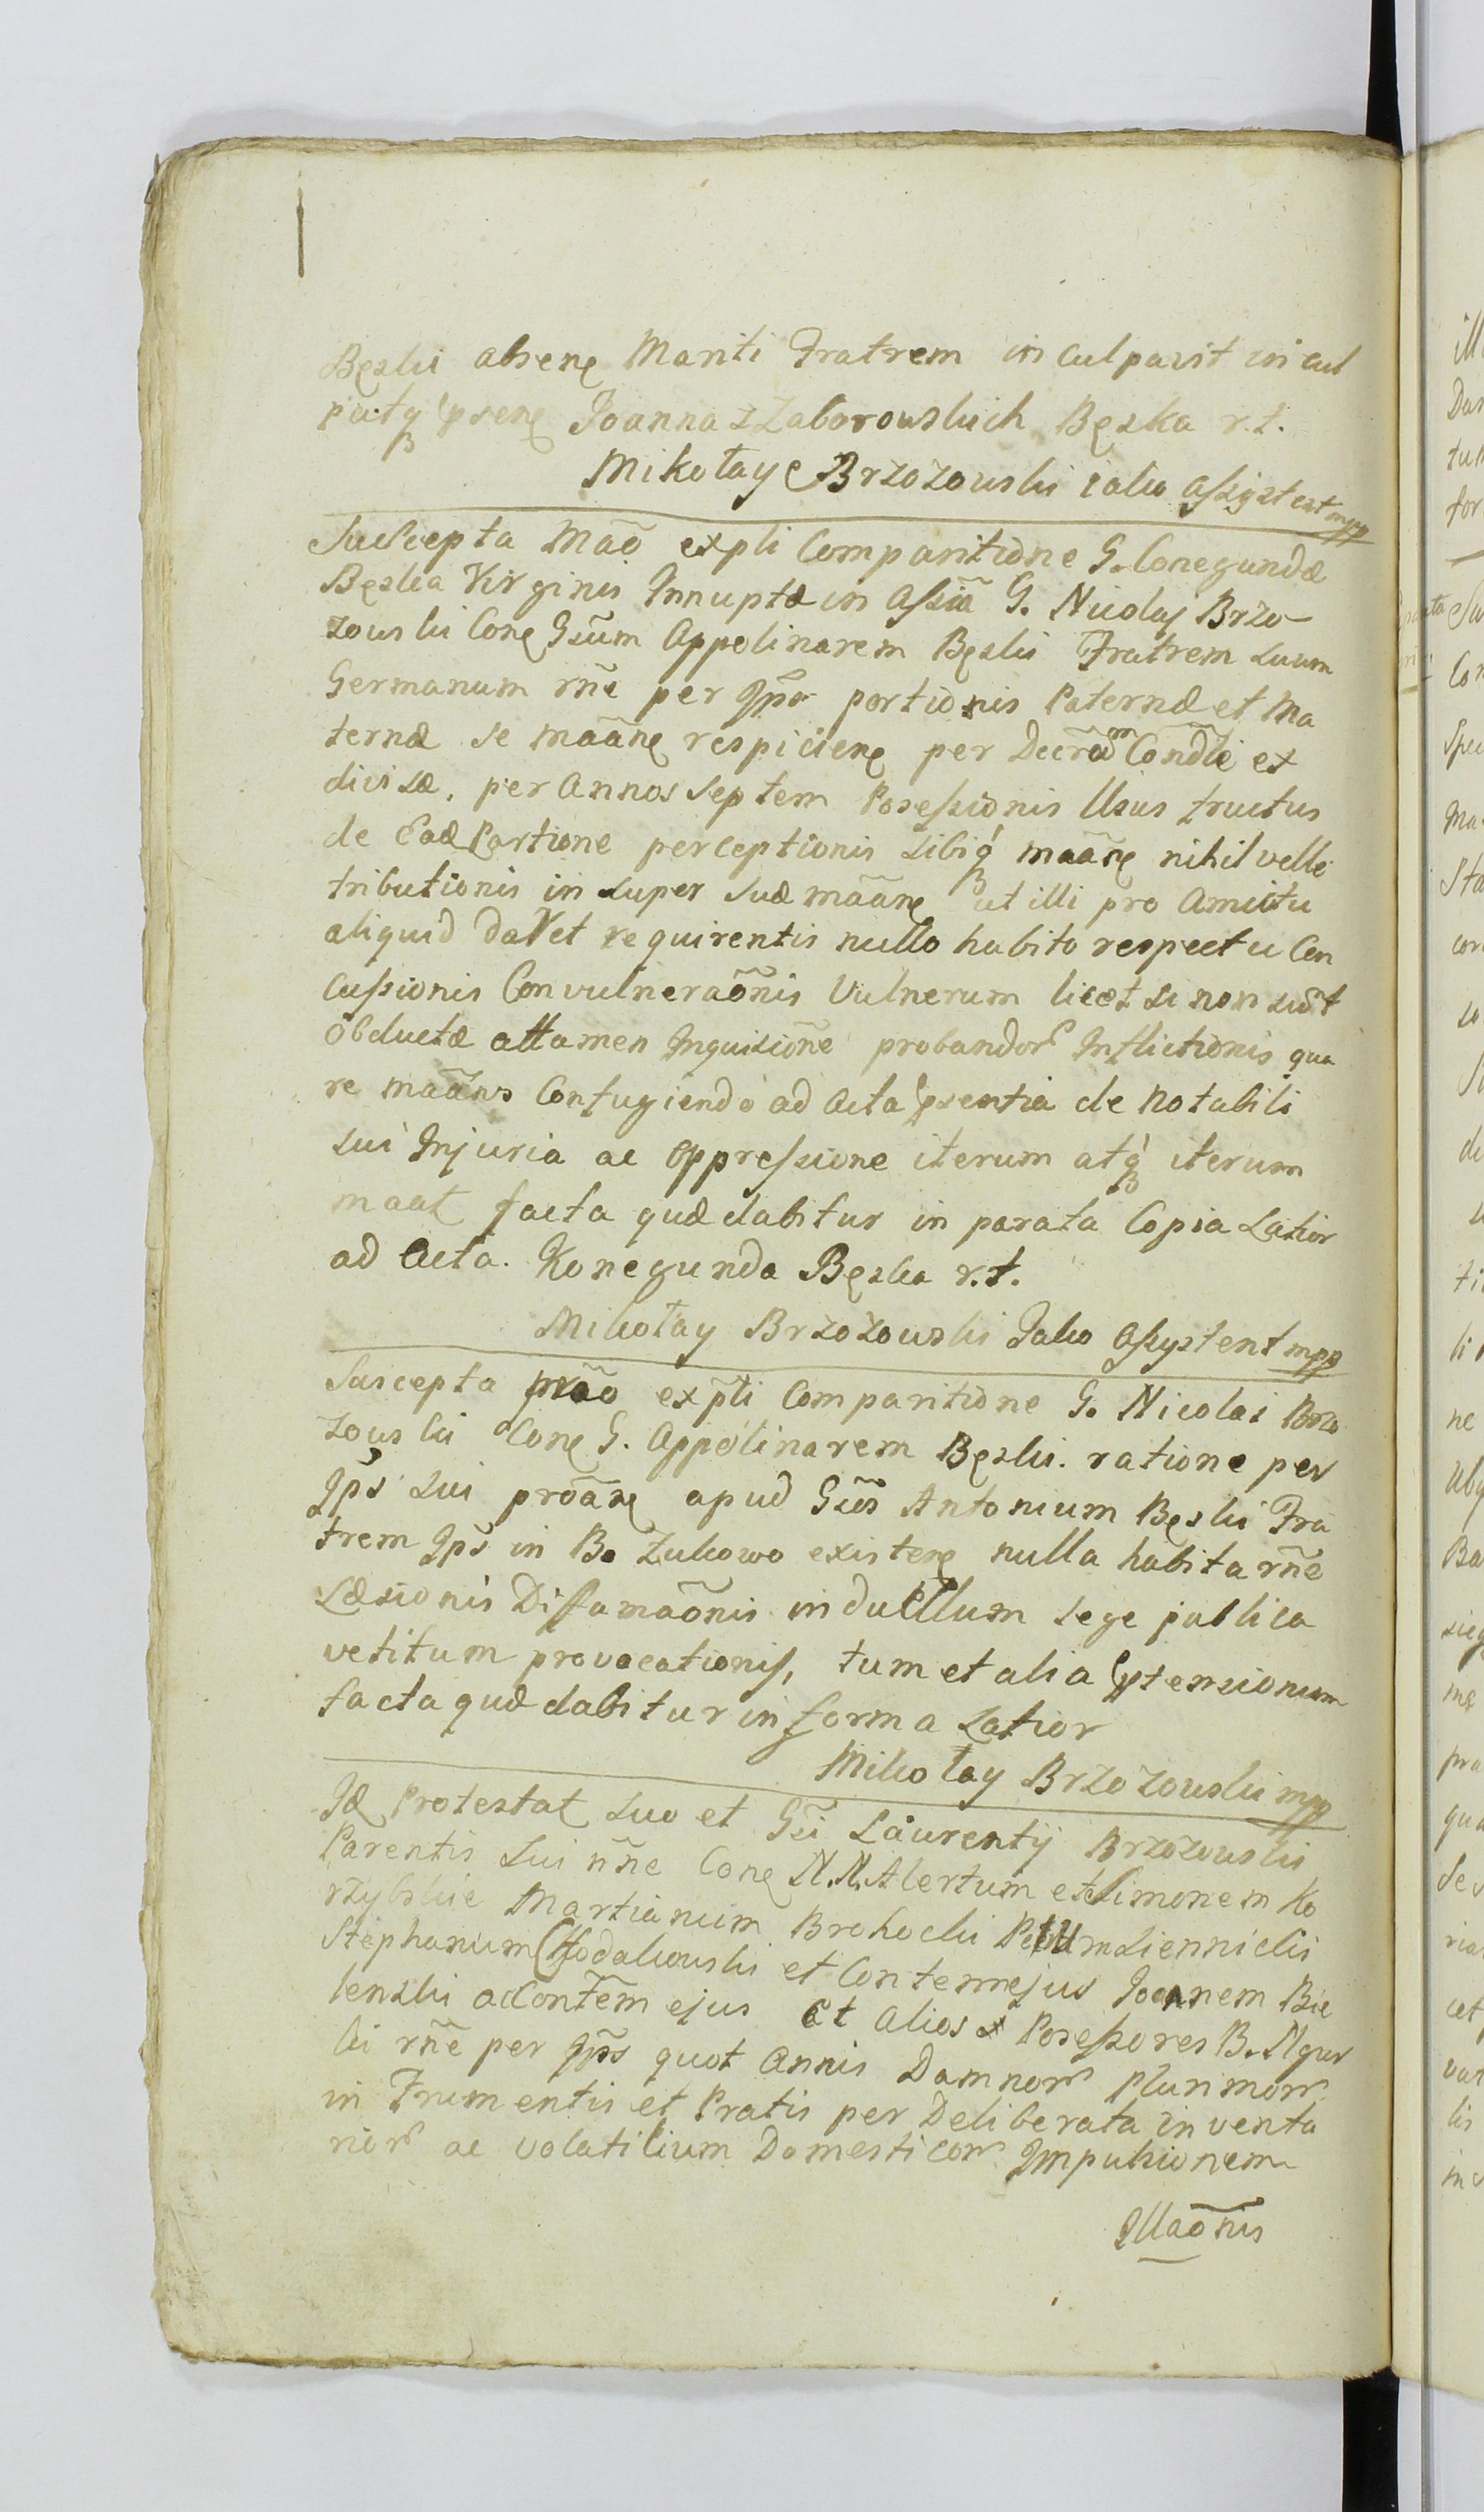 Bęski absenę Mariti Fratrem in culpavit in cul
patq́ȝ pṡenę Joanna z Zaborowskich Bęska r.t.
Mikołay Brzozowski iako assystent mpp
Suscepta Maõ expli Comparitione G. Conegundæ
Bęska Virginis Innuptæ in Assiã G. Nicolaj Brzo-
zowski Conę Gsũm Appolinarem Bęski Fratrem suum
Germanum rñe per Jpõ portionis Paternæ et Ma
ternæ se maãnę respicienę per Decrãm Condĩ ex
divisæ, per Annos Septem Possessionis Usus fructus
de Eadæ Portione perceptionis sibiq́ȝ maãnę nihil velle
tributionis in super suæ maãnę ut illi pro Amictu
aliquid daret requirentis nullo habito respectu Con
cussionis Convulneraõnis Vulnerum licet si non sũt
obductæ attamen Inquisiõne probandor Inflictionis qua
re maãns Confugiendo ad Acta pṡentia de Notabili
sui Injuria ac Oppressione iterum atq́ȝ iterum
maat facta quæ dabitur in parata Copia Latior
ad Acta. Konegunda Bęska r.t.
Mikołay Brzozowski Jako Assystent mpp
Suscepta Maõ expl̃i Comparitione G. Nicolai Brzo
zowski Conę G. Appolinarem Bęski. ratione per
Jps̃ sui proãnę apud Gsũs Antonium Bęski Fra
trem Jps̃ in B. Zukowo existenę nulla habita rñe
Læsionis Diffamaõnis in duellum Lege publica
vetitum provocationis, tum et alia pṫensionum
facta quæ dabitur in forma Latior
Mikołay Brzozowski mpp
Idæ Protestat suo et Gsĩ Laurentij Brzozowski
Parentis sui ñne Conę N.N. Albertum et Simonem Ko
rzybskie Martianum Brohocki Siennicki
Stephanum Chodakowski et Contennejus Joannem Bie
lenski ac Contẽm ejus Et alios Possessores B. Mgur
ki rñe per Jps̃ quot Annis Damnor plurimor
in Frumentis et Pratis per Deliberata inventa
rior ac volatilium Domesticor Impulsionem
Illaõnis